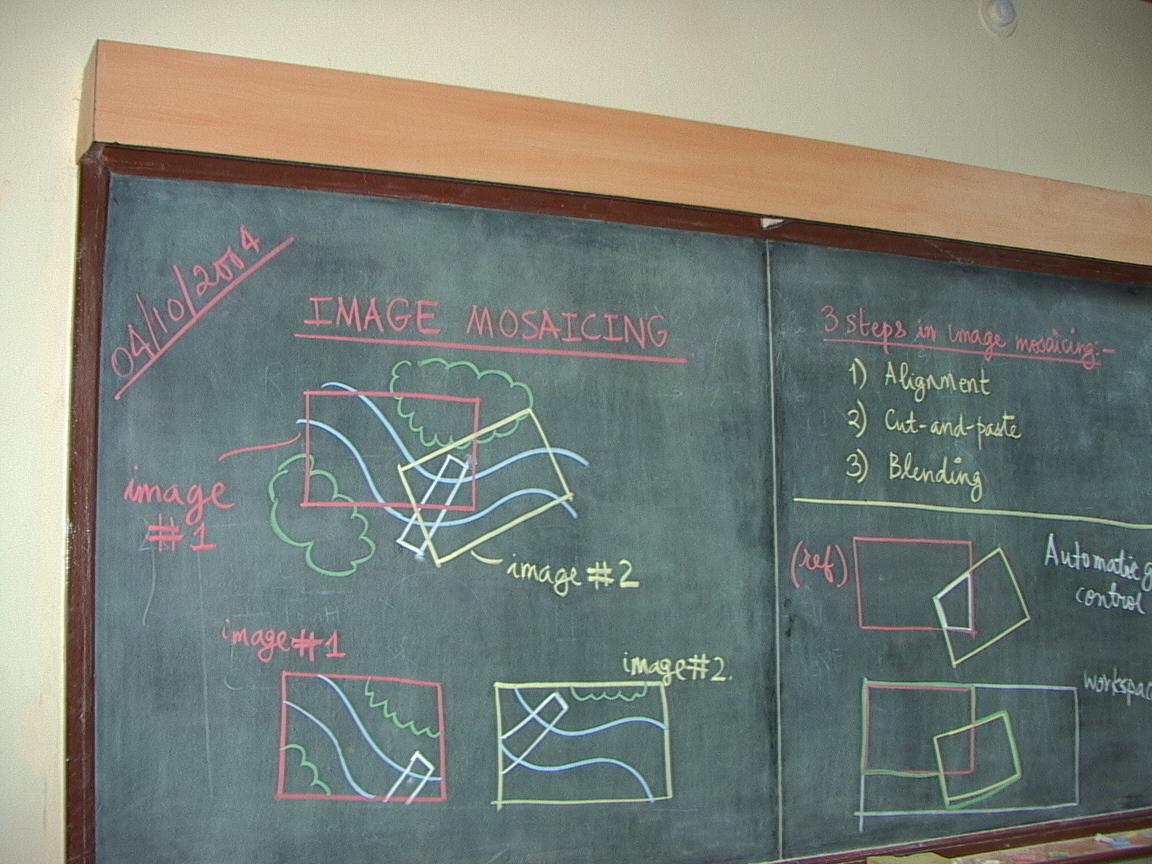 04/10/2004
IMAGE MOSAICING
image
#1
image #2
image #1
image #2.
3 steps in image mosaicing:-
1) Alignment
2) Cut-and-paste
3) Blending
(ref)
Automatic g
control
workspac